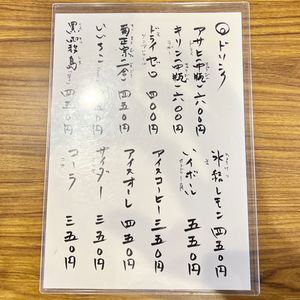 ◎ドリンク
アサヒ(中瓶)六〇〇円
キリン(中瓶)六〇〇円
ドライゼロ 四〇〇円
菊正宗(一合)四五〇円
いいちこ 四五〇円
黒霧島 四五〇円
氷結レモン 四五〇円
ハイボール 五五〇円
アイスコーヒー 三五〇円
アイスオーレ 四五〇円
サイダー 三五〇円
コーラ 三五〇円